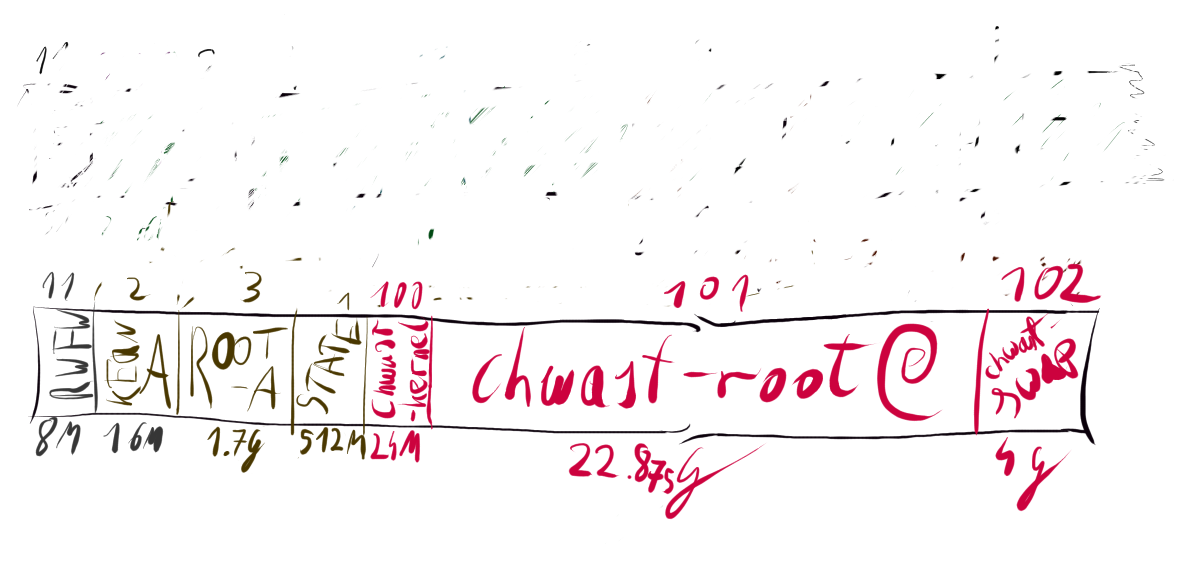 1
11 2 3 1 100 101 102
RWFW KERN A ROOT -A STATE chwast -kernel chwast-root@ chwast- swap
8M 16M 1.7g 512M 24M 22.875g 4g